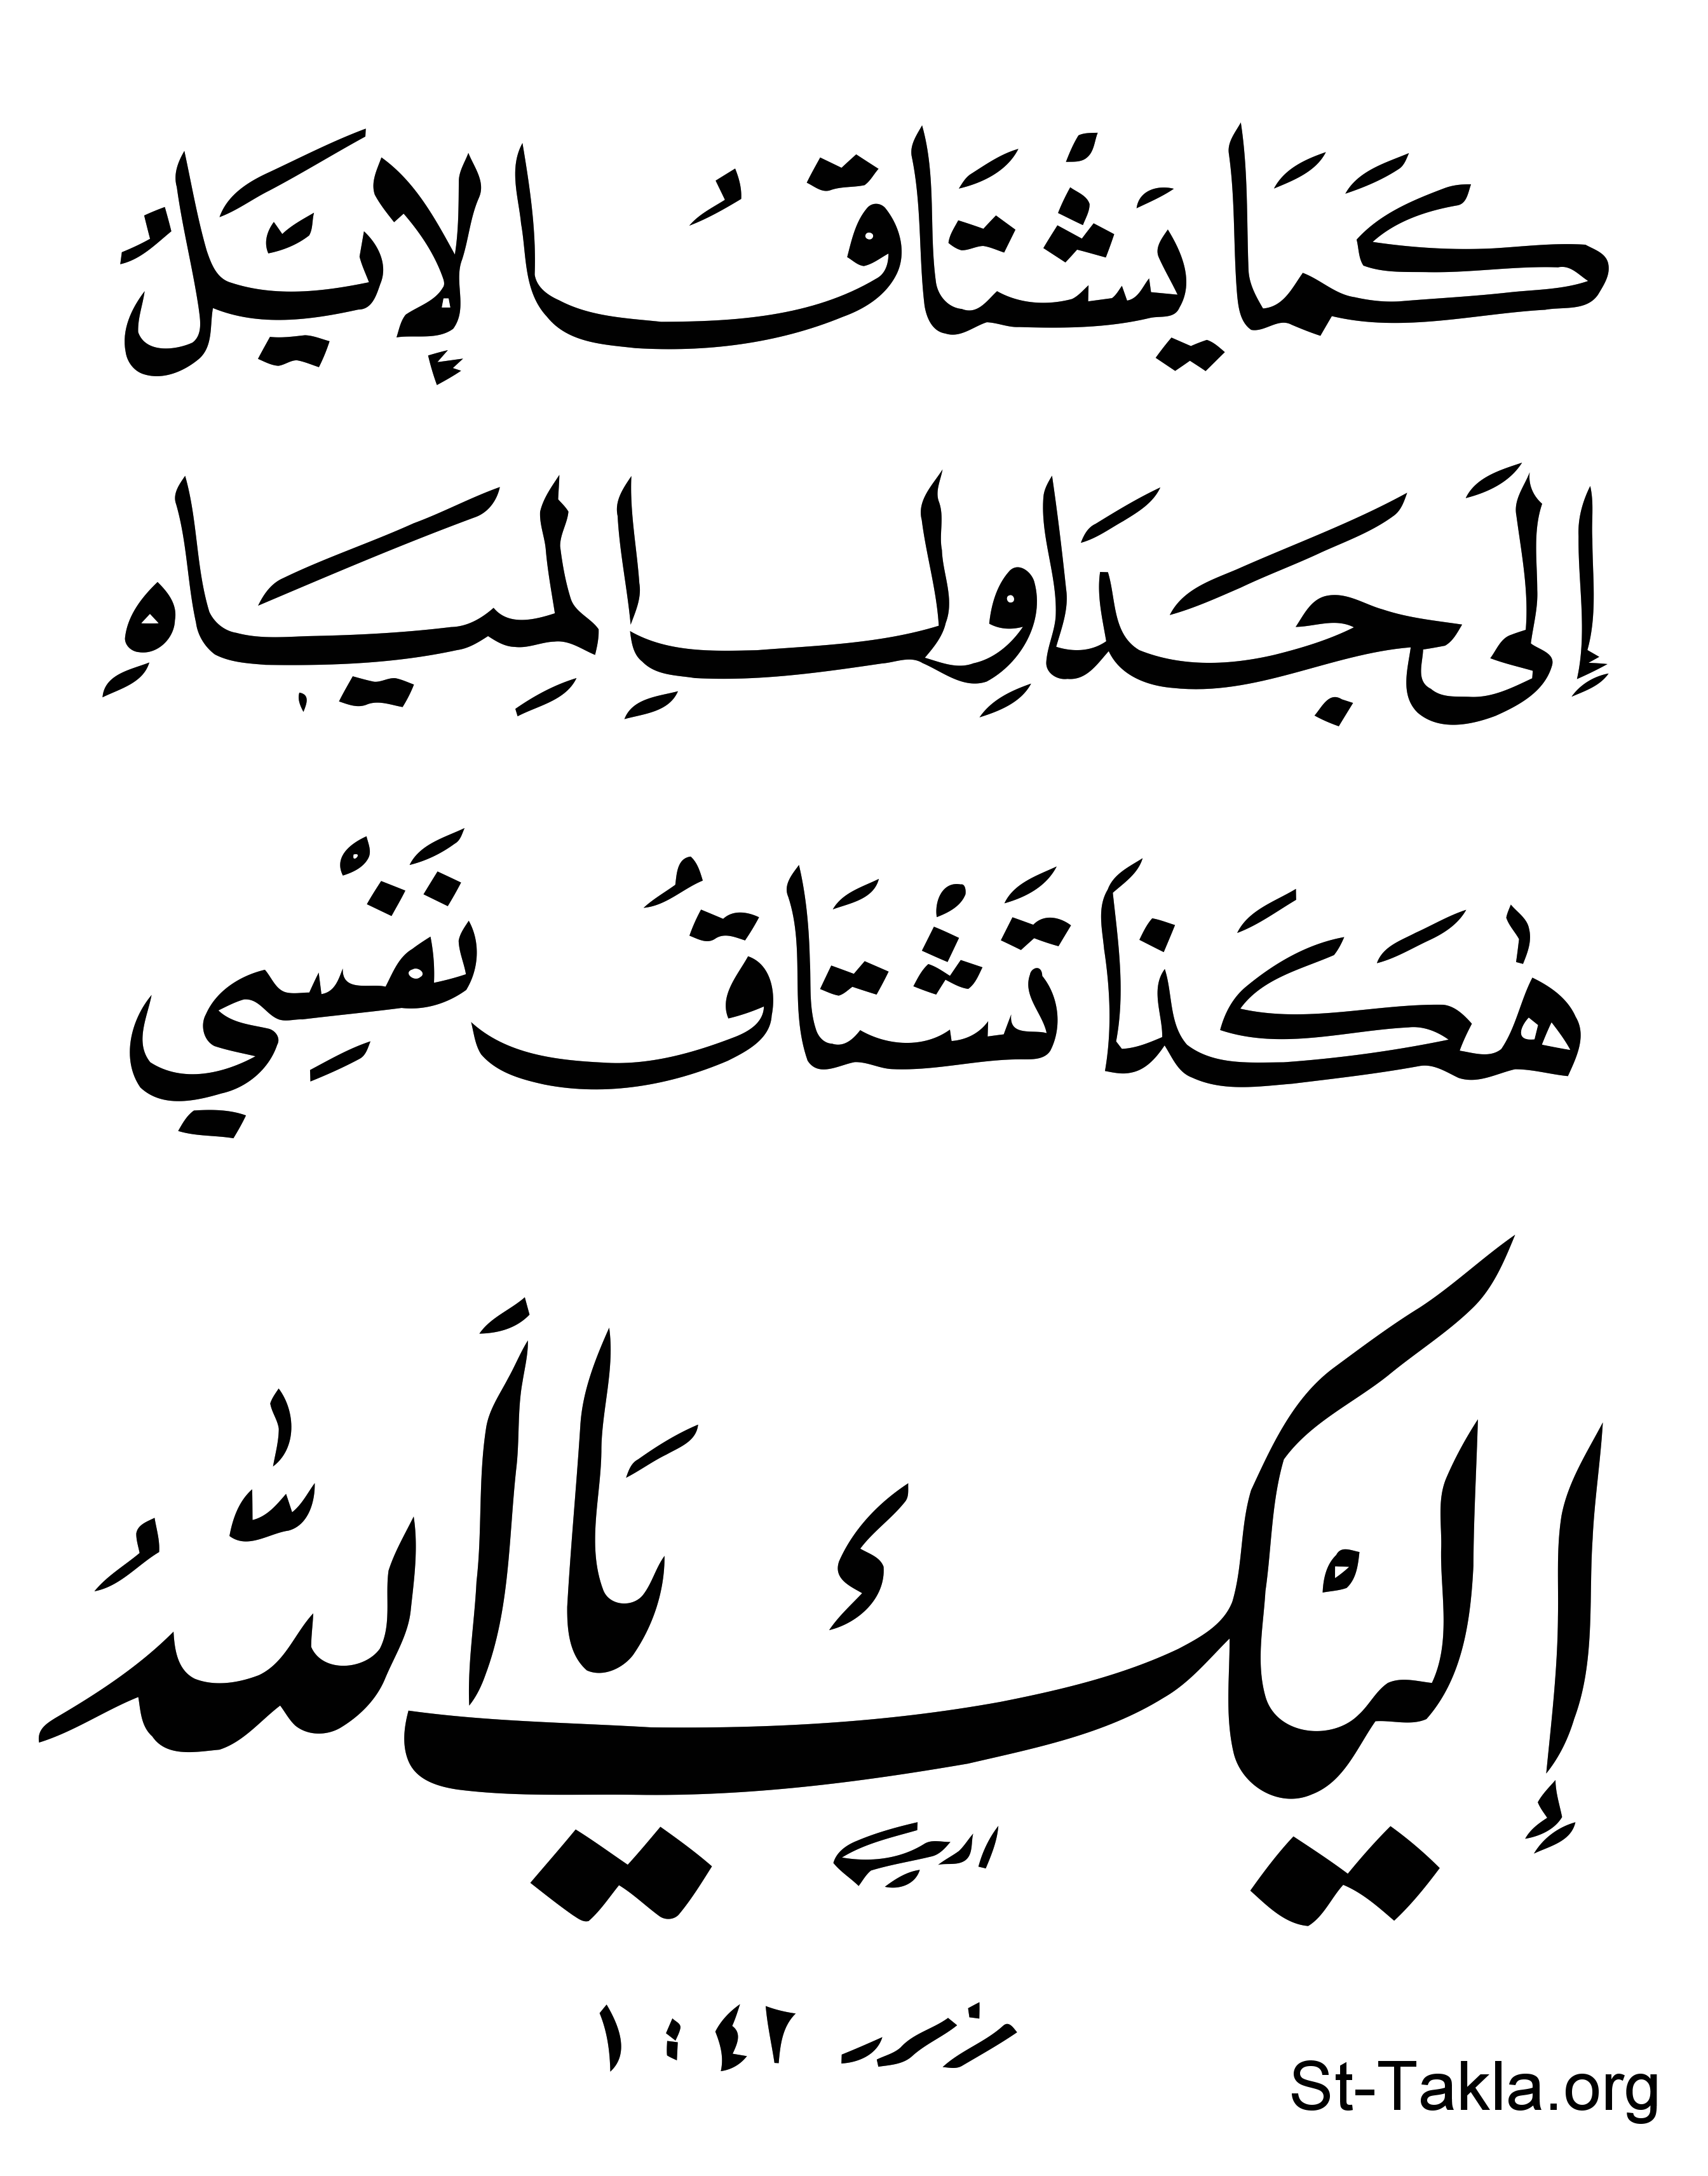 كَمَا يَشْتَاقُ الإِيَّلُ
إِلَى جَدَاوِلِ الْمِيَاهِ
هٰكَذَا تَشْتَاقُ نَفْسِي
إِلَيْكَ يَا أَللّٰهُ
مز ٤٢ : ١
St-Takla.org